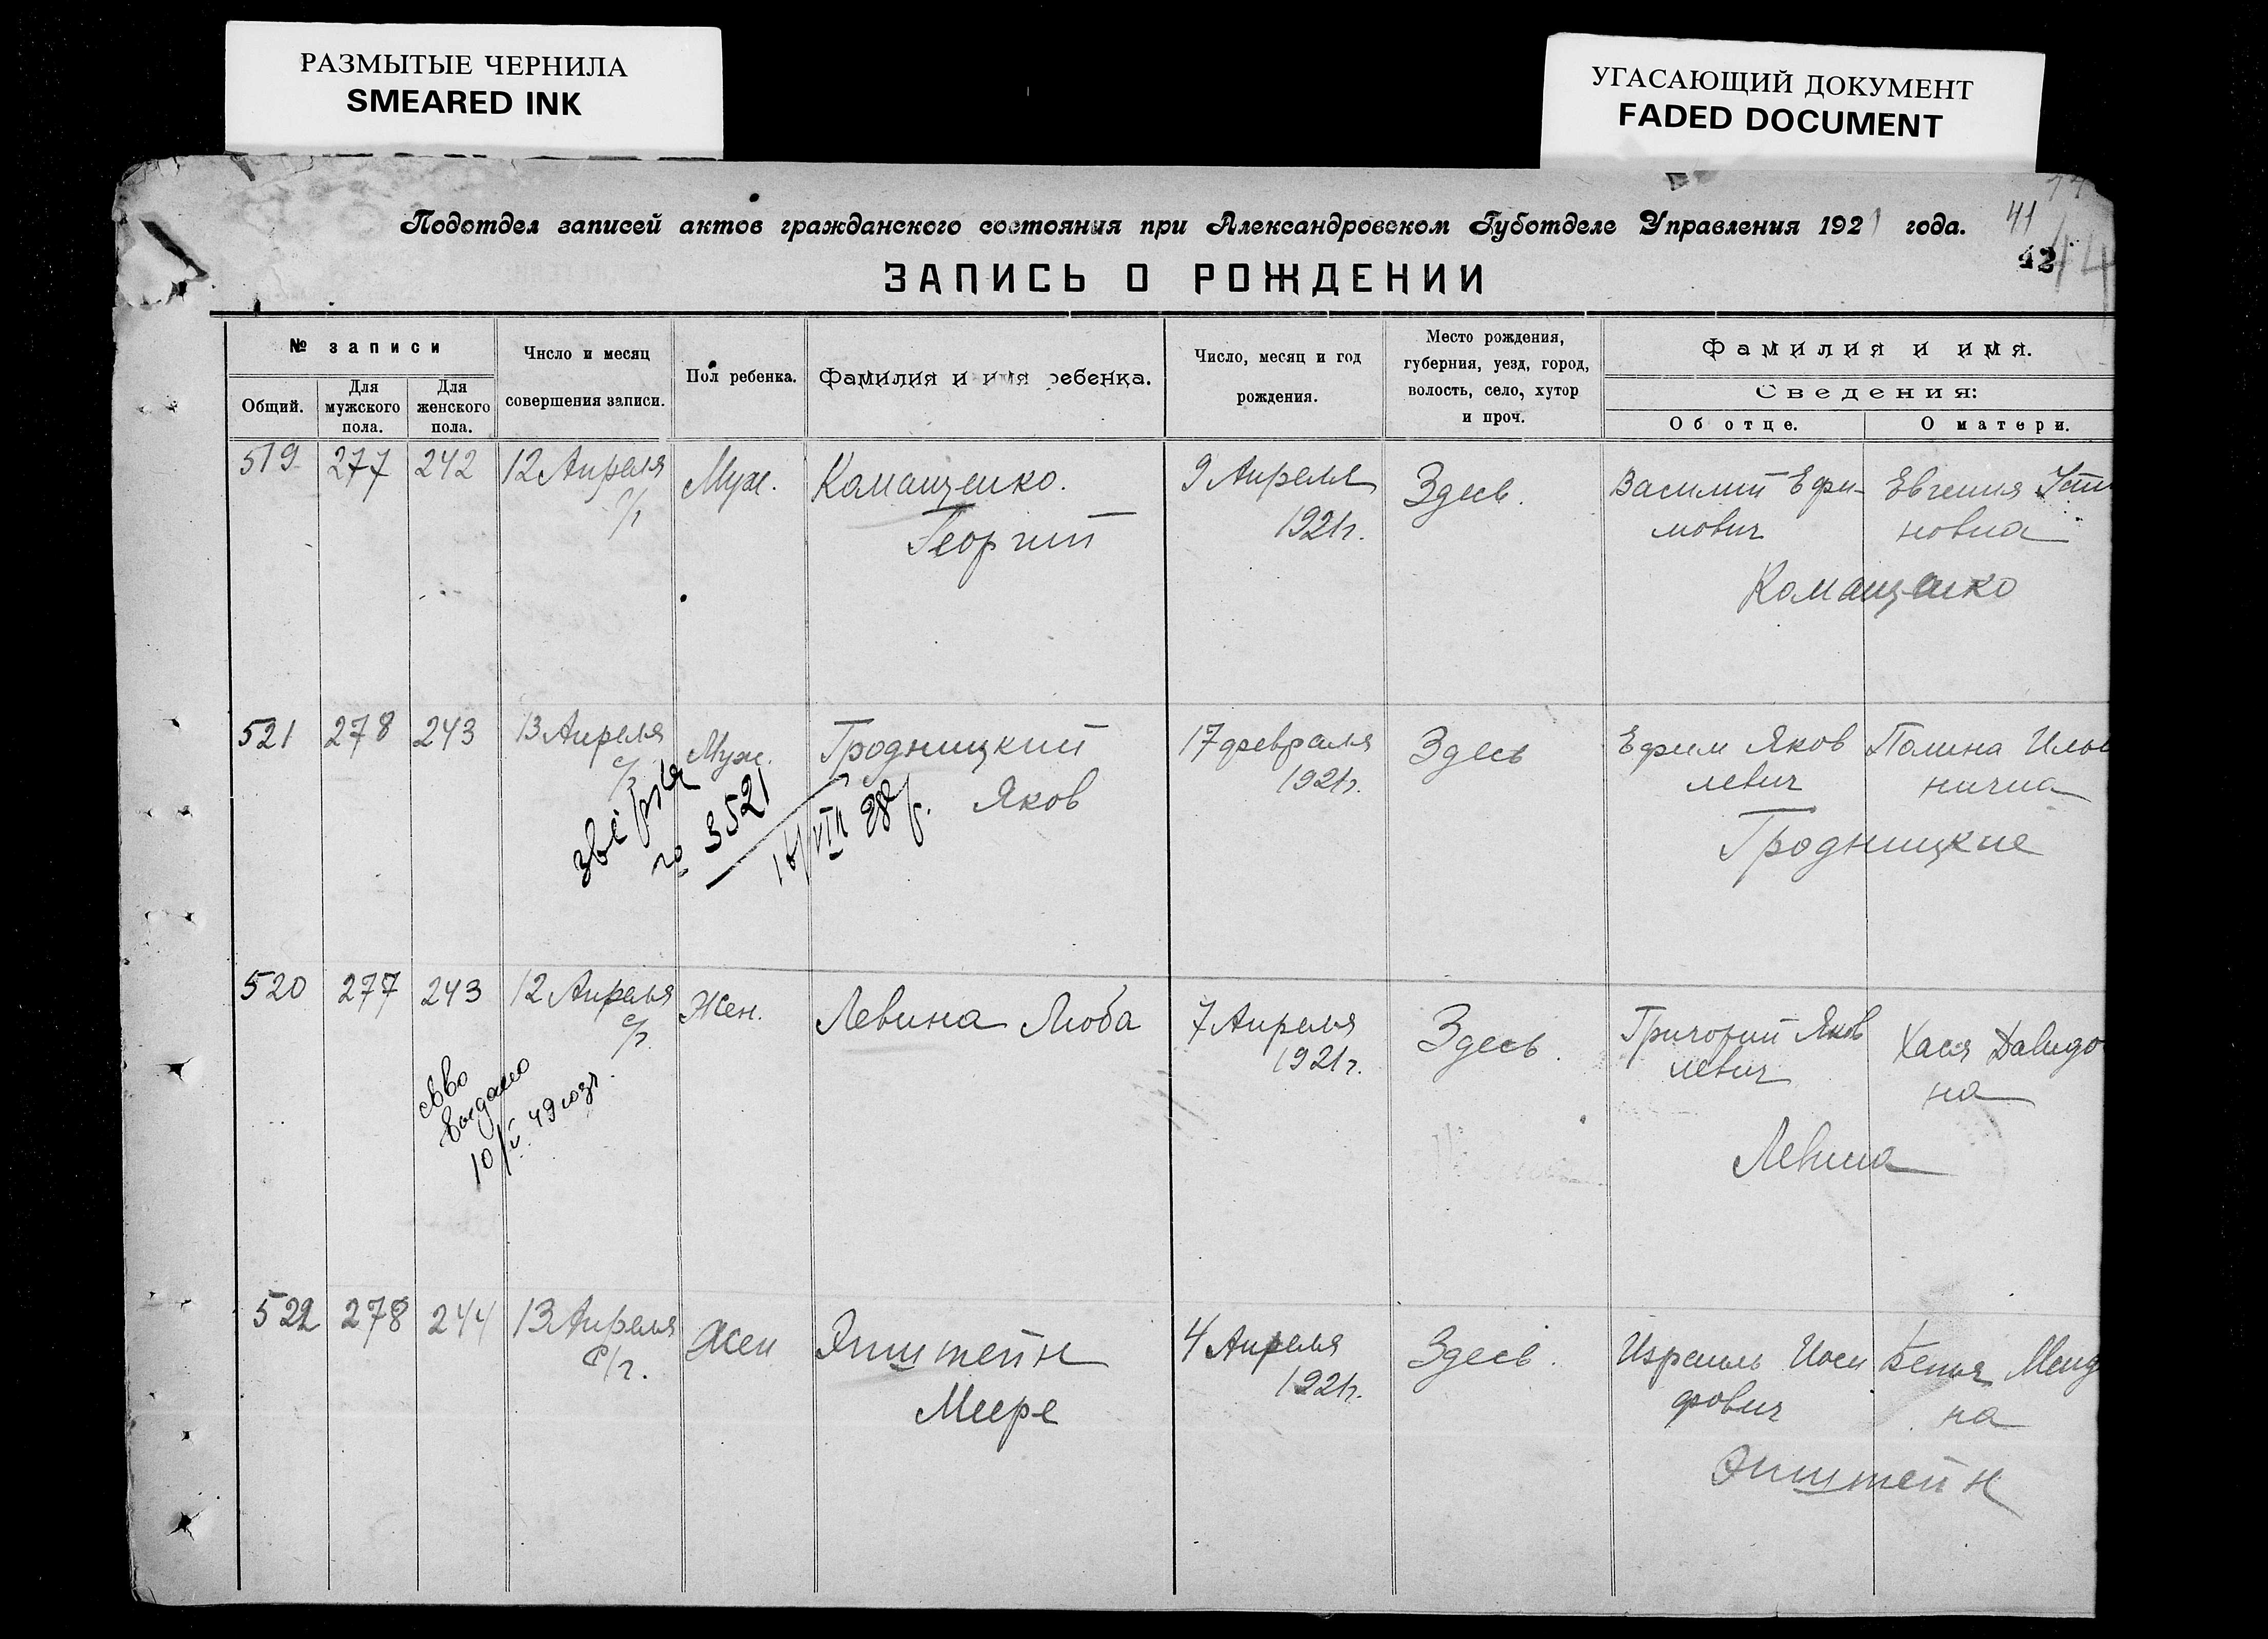 РАЗМЫТЫЕ ЧЕРНИЛА
SMEARED INK
УГАСАЮЩИЙ ДОКУМЕНТ
FADED DOCUMENT
Подотдел записей актов гражданского состояния при Александровском Губотделе Управления 1921 года.
41
42
ЗАПИСЬ О РОЖДЕНИИ
№ записи
Общий.
Для мужского пола.
Для женского пола.
Число и месяц совершения записи.
Пол ребенка.
Фамилия и имя ребенка.
Число, месяц и год рождения.
Место рождения, губерния, уезд, город, волость, село, хутор и проч.
Фамилия и имя.
Сведения:
Об отце.
О матери.
519 277 242 12 Апреля с/г Муж. Комащенко. Георгий 9 Апреля 1921г. Здесь. Василий Ефимович Евгения новна
Комащенко
521 278 243 13 Апреля с/г Муж. Гродницкий Яков 17 февраля 1921г. Здесь Ефим Яковлевич Полина нична
Гродницкие
3521
520 277 243 12 Апреля с/г Жен. Левина Люба 7 Апреля 1921г. Здесь. Григорий Яковлевич Хася Давидо на
Левина
выдано
522 278 244 13 Апреля с/г. Жен Эпштейн Мере 4 Апреля 1921г. Здесь. Израиль Иосифович Менд на
Эпштейн